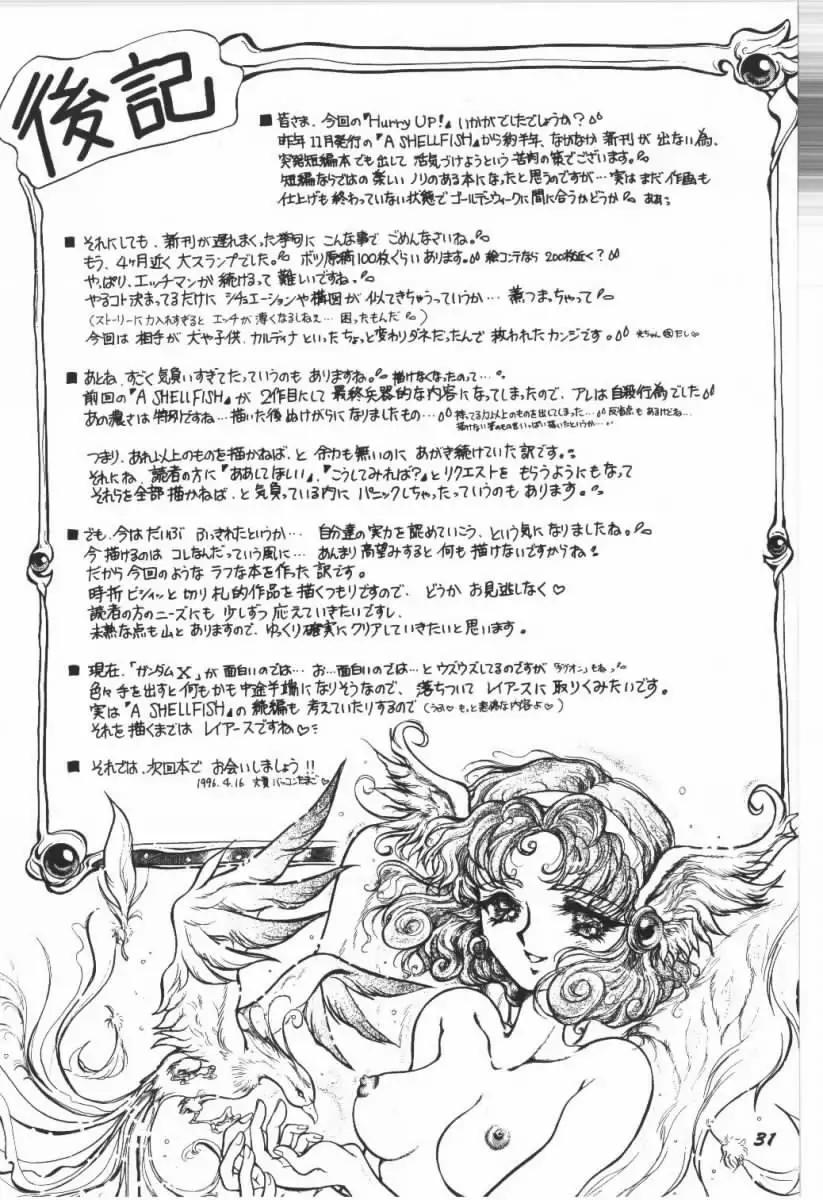 後記
■ 皆さま、今回の『Hurry UP!』いかがでしたでしょうか？
昨年11月発行の『A SHELLFISH』から約半年、なかなか新刊が出ない為、
突発短編本でも出して 活気づけようという苦肉の策でございます。
短編ならではの楽しいノリのある本になったと思うのですが…実はまだ作画も
仕上げも終わっていない状態でゴールデンウィークに間に合うかどうか
■ それにしても、新刊が遅れまくった挙句に こんな事で ごめんなさいね。
もう、4ヶ月近く 大スランプでした。ボツ原稿100枚ぐらいあります。絵コンテなら 200枚近く？
やっぱり、エッチマンガ続けるって 難しいですね。
やるコト決まってるだけに シチュエーションや構図が 似てきちゃうっていうか… 煮つまっちゃって
（ストーリーに力入れすぎると エッチが薄くなるしねぇ… 困ったもんだ）
■ あとね、すごく気負いすぎてたっていうのも ありますね。描けなくなったのって…
前回の『A SHELLFISH』が 2作目にして 最終兵器的な内容になってしまったので、アレは自殺行為でした
あの濃さは特別ですね…描いた後ぬけがらになりましたもの…
持ってる力以上のものを出してしまった… 反省点もあるけどね…
つまり、あれ以上のものを描かねば、と 余力も無いのに あがき続けていた訳です。
それにね、読者の方に『ああしてほしい』、『こうしてみれば？』とリクエストを もらうようにもなって
それらを全部描かねば、と気負っている内に パニックしちゃったっていうのも あります。
■ でも、今はだいぶ ふっきれたというか… 自分達の実力を認めていこう、という気になりましたね。
今描けるのは コレなんだっていう風に… あんまり高望みすると何も描けないですからね
だから今回のような ラフな本を作った訳です。
時折ビシィッと切り札的作品を描くつもりですので、どうか お見逃しなく♡
読者の方のニーズにも 少しずつ応えていきたいですし、
未熟な点も山とありますので、ゆっくり確実にクリアしていきたいと思います。
■ 現在、「ガンダムX」が面白いのでは… お…面白いのでは…とウズウズしてるのですが
色々手を出すと何もかも中途半端になりそうなので、落ちついて レイアースに取りくみたいです。
実は『A SHELLFISH』の続編も 考えていたりするので（うふ♡ もっと悪趣味な内容よ♡）
それを描くまでは レイアースですね♡
■ それでは、次回本で お会いしましょう!!
1996.4.16
31